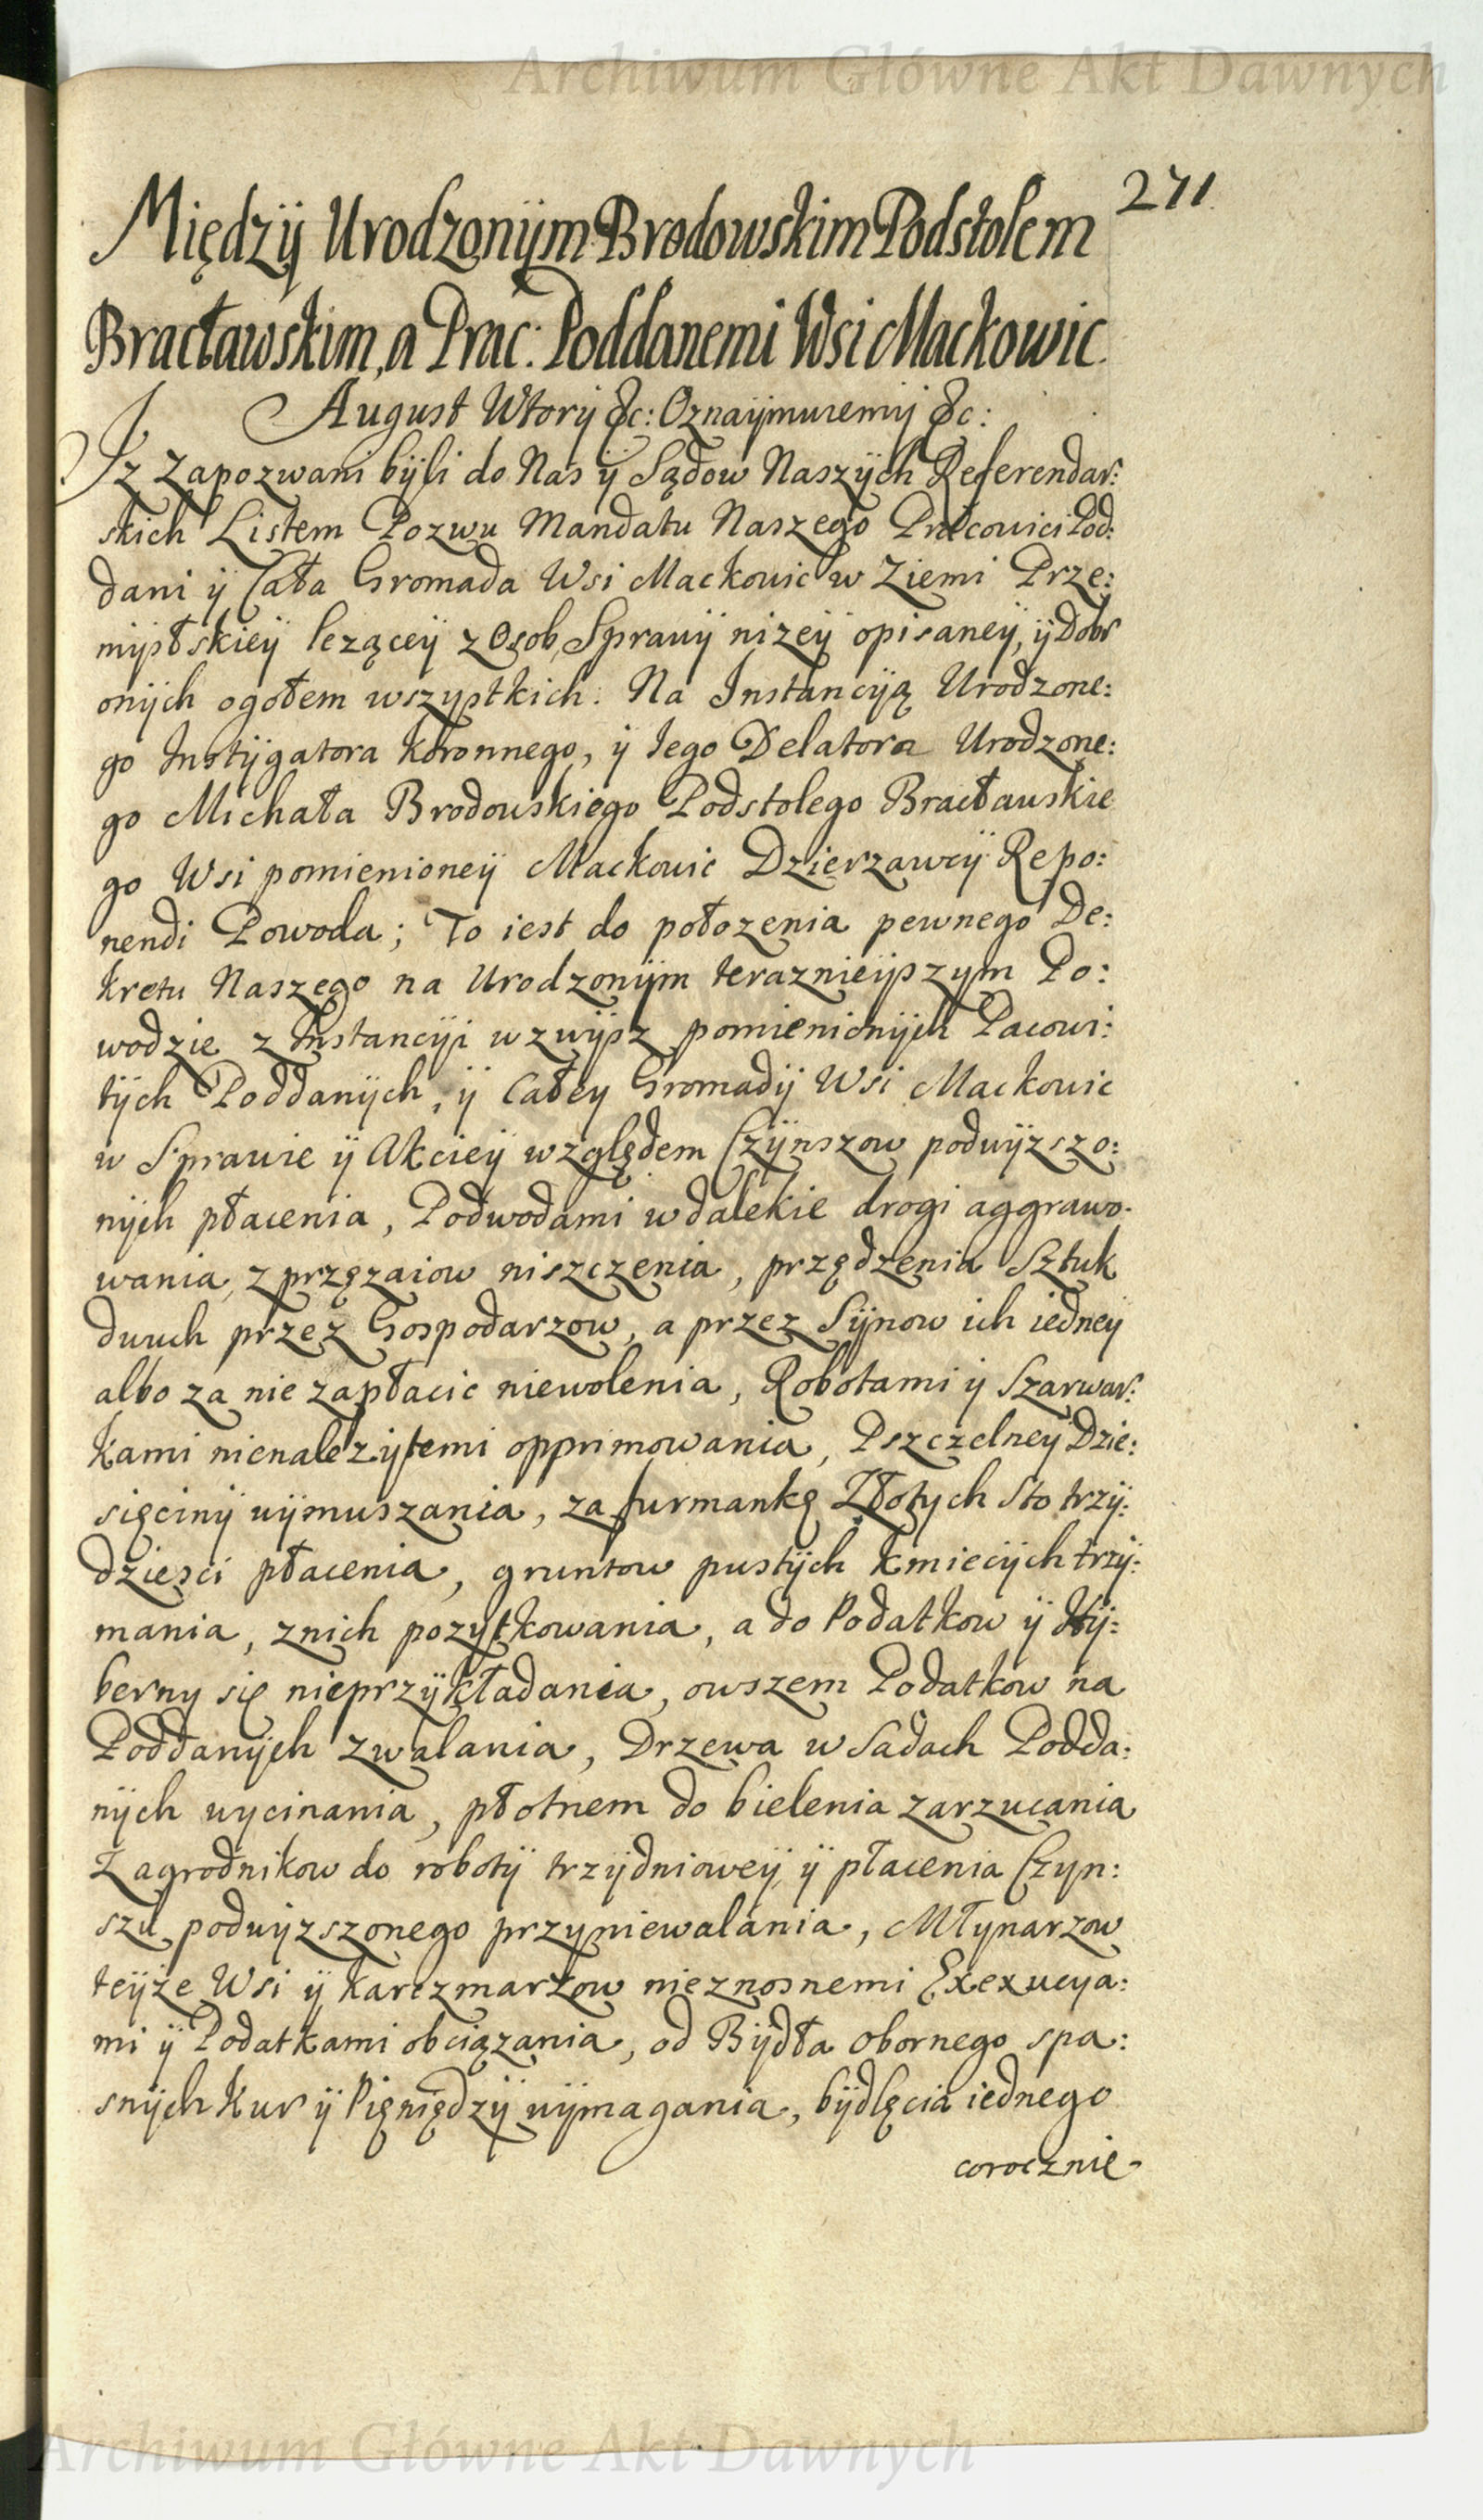 Archiwum Główne Akt Dawnych
271
Międzÿ Urodzonÿm Brodowskim Podstolem
Bracławskim, a Prac: Poddanemi Wsi Mackowic
August Wtorÿ &c: Oznaÿmuiemÿ &c:
Iz Zapozwani bÿli do Nas ÿ Sądow Naszÿch Referendar:
skich Listem Pozwu Mandatu Naszego Pracowici Pod:
dani ÿ Cała Gromada Wsi Mackowic w Ziemi Prze:
mÿslskieÿ leząceÿ z Osob, Sprawÿ nizeÿ opisaneÿ, ÿ Dobr
onÿch ogołem wszystkich. Na Instancÿą Urodzone:
go Instÿgatora Koronnego, ÿ Iego Delatora Urodzone:
go Michała Brodowskiego Podstolego Bracławskie
go Wsi pomienioneÿ Mackowic Dzierzawcÿ Repo:
nendi Powoda; To iest do połozenia pewnego De:
kretu Naszego na Urodzonÿm teraznieÿszym Po:
wodzie z Instancÿi wzwÿsz pomienionÿch Pacowi:
tÿch Poddanÿch, ÿ Całey Gromadÿ Wsi Mackowic
w Sprawie ÿ Akcieÿ względem Czÿnszow podwÿzszo:
nÿch płacenia, Podwodami w dalekie drogi aggrawo-
wania, zprzęzaiow niszczenia, przędzenia Sztuk
dwuch przez Gospodarzow, a przez Sÿnow ich iedneÿ
albo za nie zapłacic niewolenia, Robotami ÿ Szarwar:
kami nienalezÿtemi opprimowania, Pszczelneÿ Dzie:
sięcinÿ wÿmuszania, za furmankę Złotych Sto trzÿ:
dziesci płacenia, gruntow pustÿch kmiecÿch trzÿ:
mania, znich pozytkowania, a do Podatkow ÿ Hÿ:
berny się nieprzÿkładania, owszem Podatkow na
Poddanÿch zwalania, Drzewa w Sadach Podda:
nÿch wycinania, płotnem do bielenia zarzucania
Zagrodnikow do robotÿ trzÿdnioweÿ ÿ płacenia Czyn:
szu podwÿzszonego przyniewalania, Młynarzow
teÿże Wsi ÿ karczmarzow nieznosnemi Exexucya:
mi ÿ Podatkami obciązania, od Bÿdła obornego spa:
snÿch Kur ÿ Pięnięდzÿ wÿmagania, bÿdlęcia iednego
corocznie
Archiwum Główne Akt Dawnych